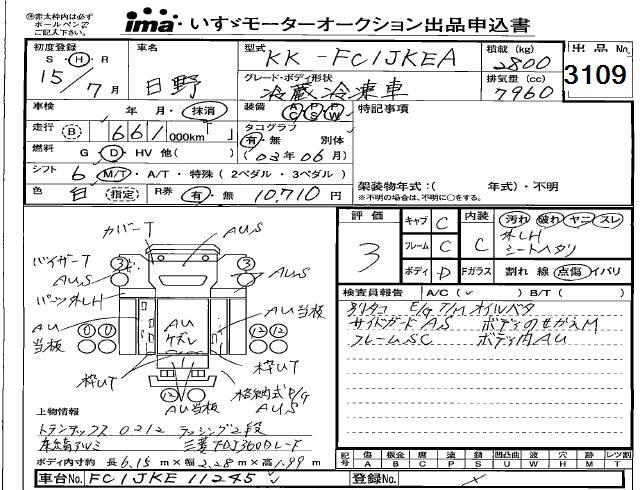 ※赤太枠内は必ず
ボールペンで
ご記入下さい。
ima いすゞモーターオークション出品申込書
初度登録
S・H・R
15/7月
車名
日野
型式
KK-FC1JKEA
積載(kg)
2800
出品No.
3109
グレード・ボディ形状
冷蔵冷凍車
排気量(cc)
7960
車検 年 月・抹消
装備 AC PS PW
特記事項
走行(B) 661000km「 」
タコグラフ
有・無 別体
(03年06月)
燃料 G・D・HV 他( )
シフト 6 M/T・A/T・特殊(2ペダル・3ペダル)
架装物年式:( 年式)・不明
※架装物の場合は、不明に○をする。
色 白 (指定)
R券 有・無 10,710円
評価
3
キャブ C
フレーム C
ボディ D
内装 C
汚れ 破れ ヤニ スレ
外レH
シートヘタリ
Fガラス 割れ 線 点傷 イバリ
検査員報告 A/C( ✓ ) B/T( )
別タコ E/G T/M オイルベタ
サイドガードAS ボディのせかえM
フレームSC ボディ内AU
カバーT
AUS
バイザーT
AUS
3
3
AUS
パーツ外レH
AU
当板
0 0
AU
ケズレ
12 12
AU
当板
枠UT
枠UT
12
AU当板
格納式P/G
AUS
上物情報
トランテックス 0212 ラッシング2段
キーストンアルミ
三菱TDJ300Dレード
ボディ内寸約 長6.15m×幅2.28m×高1.99m
記号
傷 A
板金 B
腐 C
塗 P
錆 S
凹凸曲 U
波 W
穴 H
跡 M
レツ割 T
車台No. FC1JKE 11245
登録No.